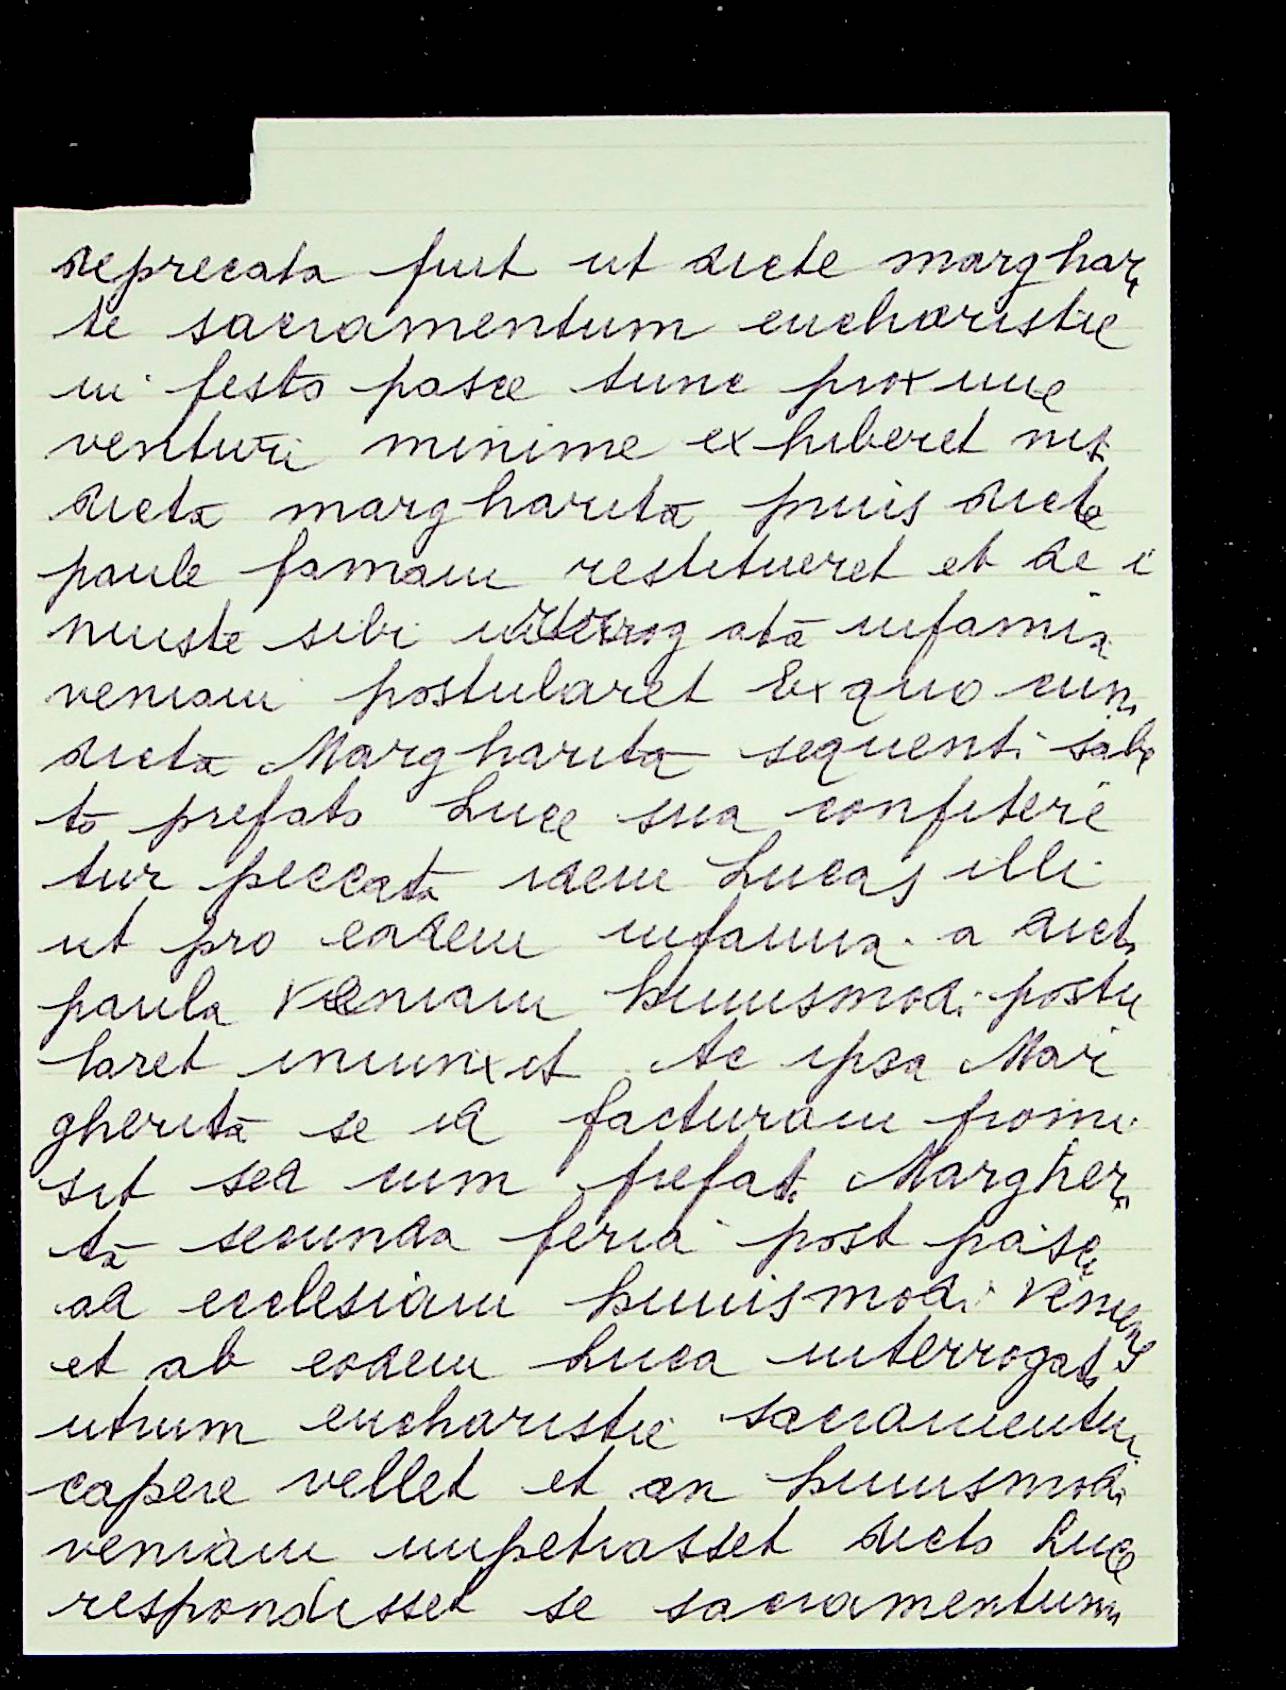 deprecata fuit ut dicte marghari
te sacramentum eucharistie
in festo pasce tunc proxime
venturi minime exhiberet nisi
dicta margharita prius dicte
paule famam restitueret et de i
niuste sibi irrogata infamia
veniam postularet Ex quo cum
dicta Margharita sequenti saba
to prefato Luce sua confitere
tur peccata idem Lucas illi
ut pro eadem infamia a dicta
paula veniam huiusmodi postu
laret iniunxit Ac ipsa Mar
gherita se id facturam promi
sit sed cum prefata Margheri
ta secunda feria post pasca
ad ecclesiam huiusmodi veniens
et ab eodem Luca interrogata
utrum eucharistie sacramentum
capere vellet et an huiusmodi
veniam impetrasset dicto Luce
respondisset se sacramentum